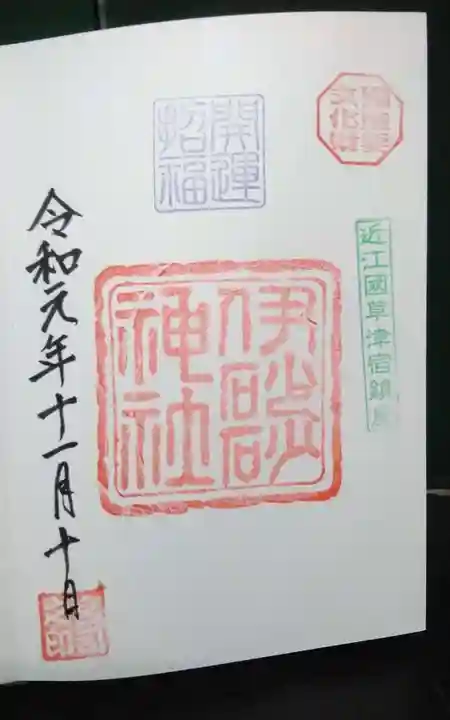 文化財
近江國草津宿鎮座
開運
招福
伊砂砂
神社
令和元年十一月十日
之印